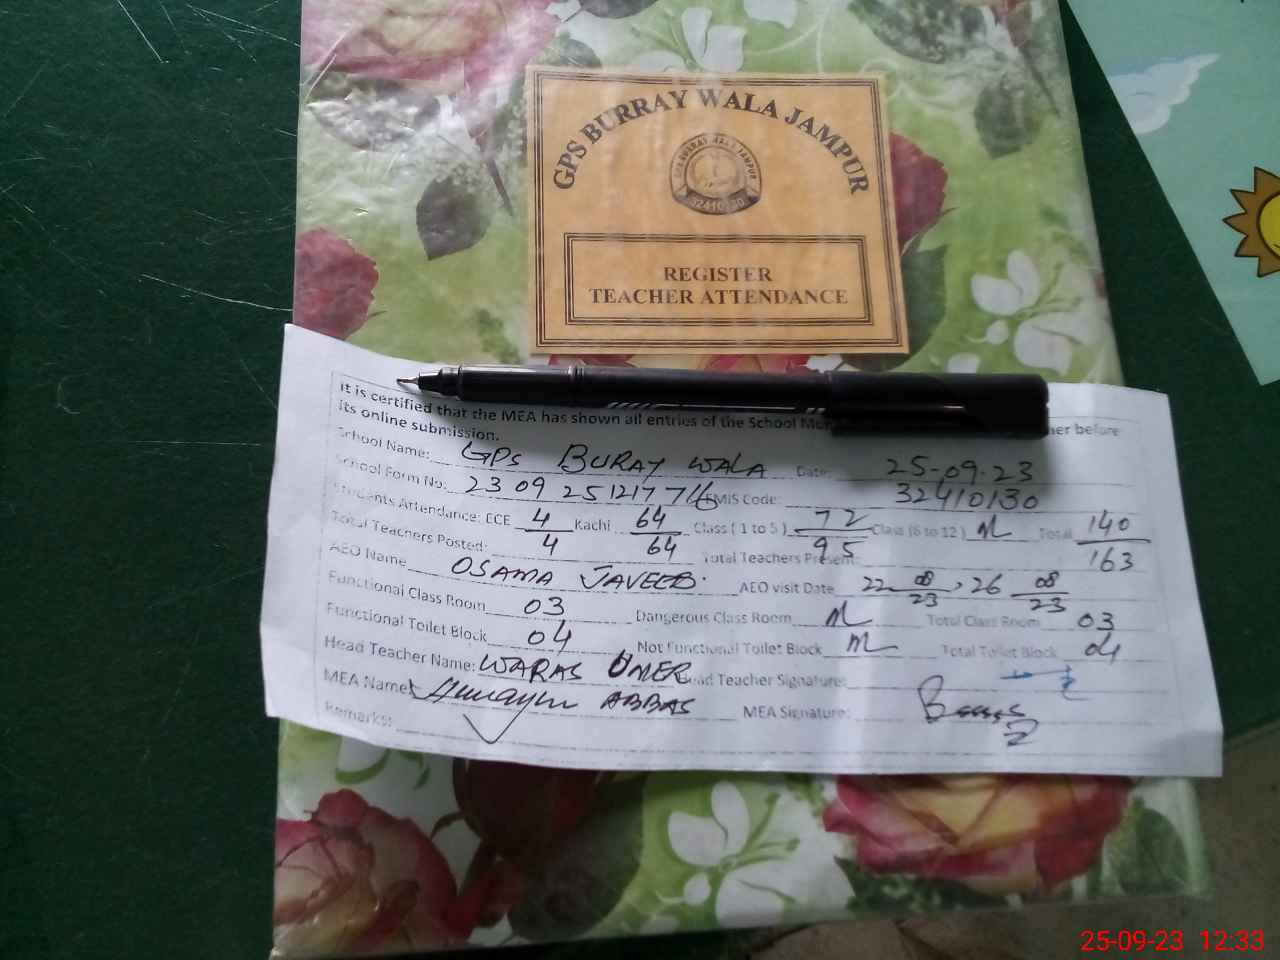 GPS BURRAY WALA JAMPUR
32410130
REGISTER
TEACHER ATTENDANCE
It is certified that the MEA has shown all entries of the School Mon her before
its online submission.
School Name: GPS BURAY WALA Date: 25-09-23
School Form No: 23 09 25 1217 74 EMIS Code: 32410130
Students Attendance: ECE 4/4 Kachi 64/64 Class (1 to 5) 72/95 Class (6 to 12) Total 140/163
Total Teachers Posted: Total Teachers Present:
AEO Name OSAMA JAVEED. AEO visit Date 22 08/23, 26 08/23
Functional Class Room 03 Dangerous Class Room Total Class Room 03
Functional Toilet Block 04 Not Functional Toilet Block Total Toilet Block 04
Head Teacher Name: WARAS UMER Head Teacher Signature:
MEA Name: Humayun ABBAS MEA Signature:
Remarks:
25-09-23 12:33